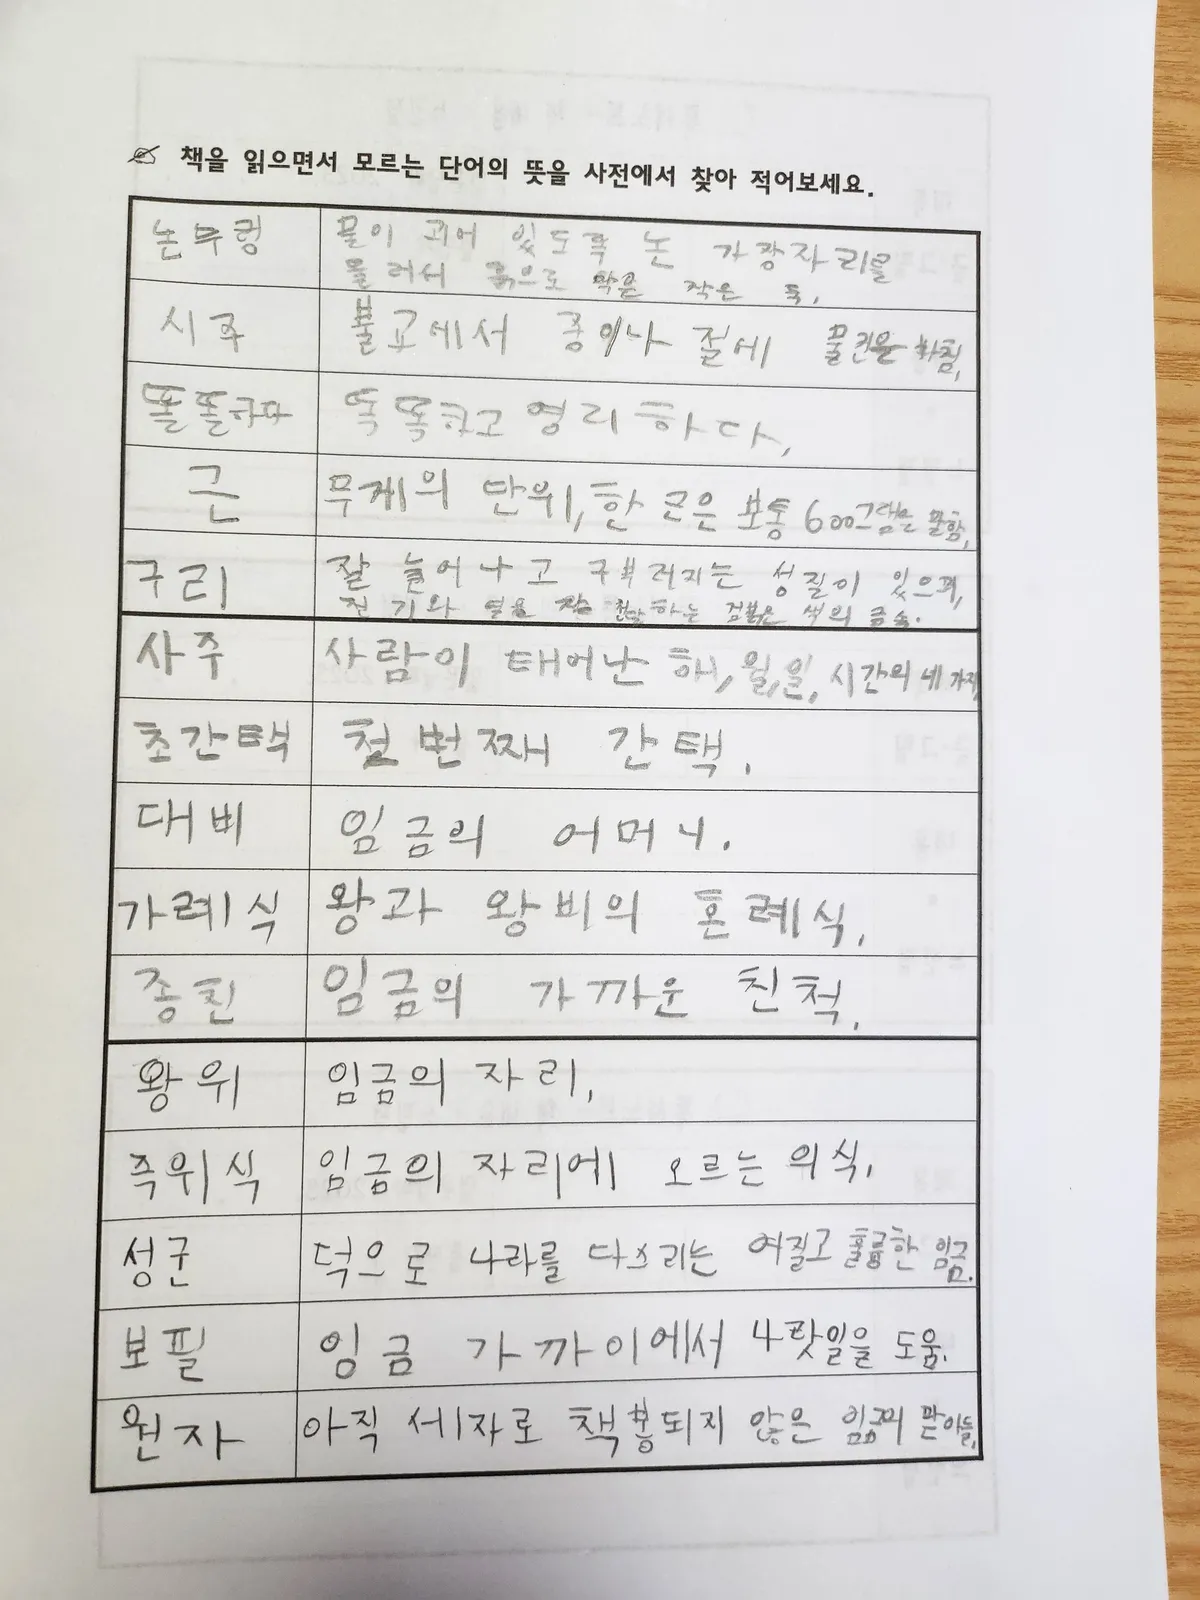 책을 읽으면서 모르는 단어의 뜻을 사전에서 찾아 적어보세요.
논두렁
물이 괴어 있도록 논 가장자리를
둘러서 흙으로 막은 작은 둑.
시주
불교에서 중이나 절에 물건을 바침.
똘똘하다
똑똑하고 영리하다.
근
무게의 단위, 한 근은 보통 600그램을 말함.
구리
잘 늘어나고 구부러지는 성질이 있으며,
전기와 열을 잘 전달하는 검붉은 색의 금속.
사주
사람이 태어난 해, 월, 일, 시간의 네 가지
초간택
첫 번째 간택.
대비
임금의 어머니.
가례식
왕과 왕비의 혼례식.
종친
임금의 가까운 친척.
왕위
임금의 자리.
즉위식
임금의 자리에 오르는 의식.
성군
덕으로 나라를 다스리는 어질고 훌륭한 임금.
보필
임금 가까이에서 나랏일을 도움.
원자
아직 세자로 책봉되지 않은 임금의 맏아들.